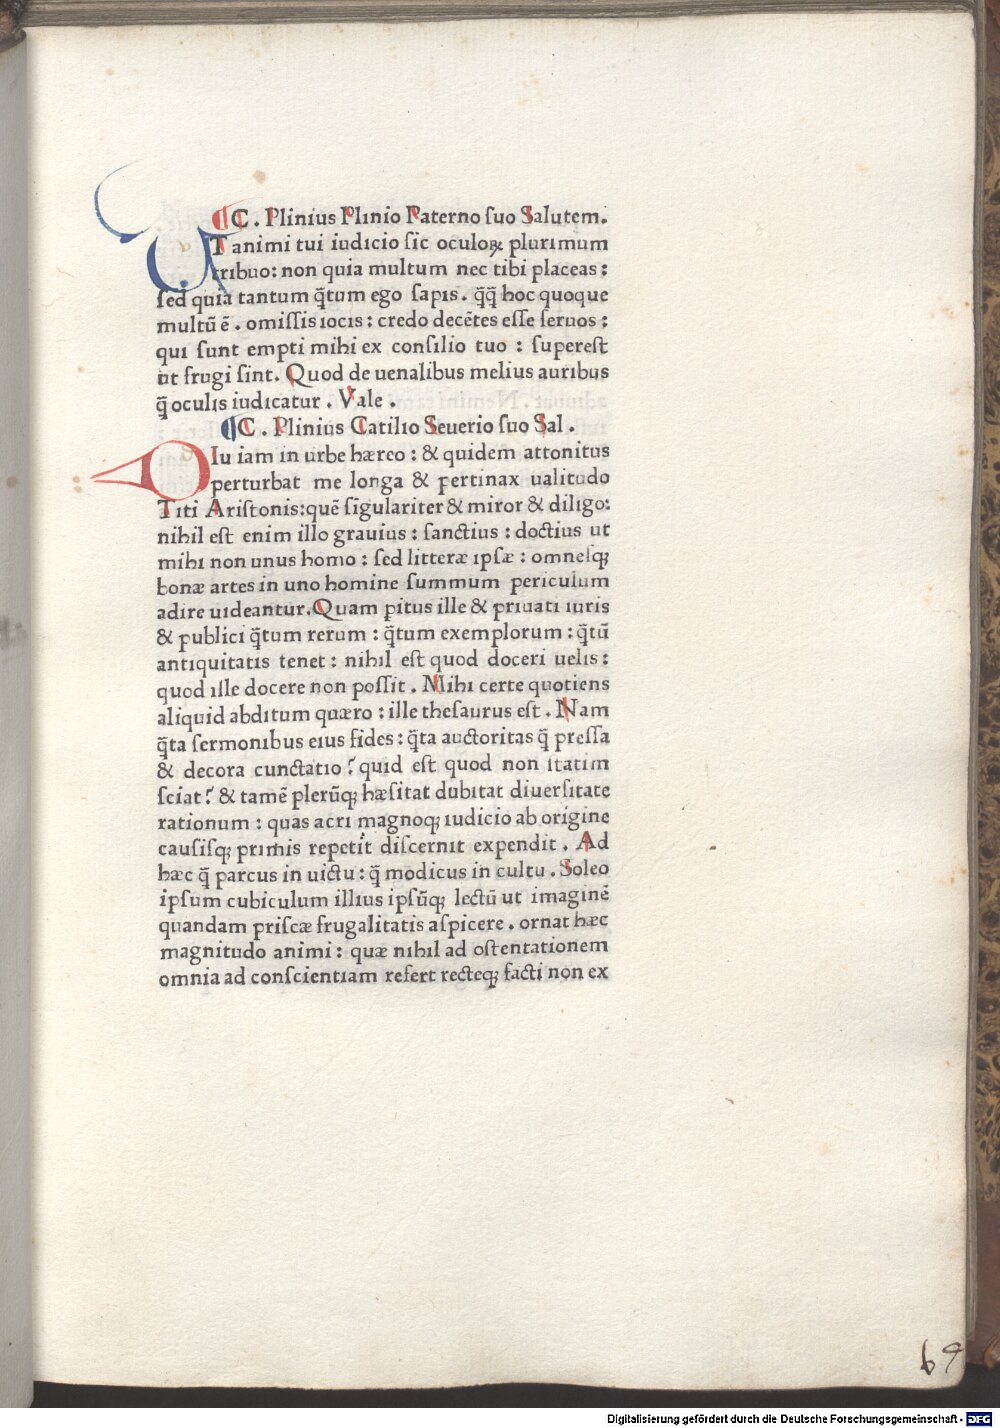 C. Plinius Plinio Paterno ſuo Salutem.
UT animi tui iudicio ſic oculoꝝ plurimum
tribuo: non quia multum nec tibi placeas:
ſed quia tantum q̃tum ego ſapis. q̃q̃ hoc quoque
multū ē. omiſſis iocis: credo decētes eſſe ſeruos:
qui ſunt empti mihi ex conſilio tuo: ſupereſt
ut frugi ſint. Quod de uenalibus melius auribus
q̃ oculis iudicatur. Vale.
C. Plinius Catilio Seuerio ſuo Sal.
DIu iam in urbe hæreo: & quidem attonitus
perturbat me longa & pertinax ualitudo
Titi Ariſtonis: quē ſigulariter & miror & diligo:
nihil eſt enim illo grauius: ſanctius: doctius ut
mihi non unus homo: ſed litteræ ipſæ: omneſꝗ
bonæ artes in uno homine ſummum periculum
adire uideantur. Quam ꝑitus ille & priuati iuris
& publici q̃tum rerum: q̃tum exemplorum: q̃tū
antiquitatis tenet: nihil eſt quod doceri uelis:
quod ille docere non poſſit. Mihi certe quotiens
aliquid abditum quæro: ille theſaurus eſt. Nam
q̃ta ſermonibus eius fides: q̃ta auctoritas q̃ preſſa
& decora cunctatio? quid eſt quod non ſtatim
ſciat? & tamē plerūꝗ hæſitat dubitat diuerſitate
rationum: quas acri magnoꝗ iudicio ab origine
cauſiſꝗ primis repetit diſcernit expendit. Ad
hæc q̃ parcus in uictu: q̃ modicus in cultu. Soleo
ipſum cubiculum illius ipſūꝗ lectū ut imaginē
quandam priſcæ frugalitatis aſpicere. ornat hæc
magnitudo animi: quæ nihil ad oſtentationem
omnia ad conſcientiam refert recteꝗ facti non ex
69
Digitalisierung gefördert durch die Deutsche Forschungsgemeinschaft - DFG